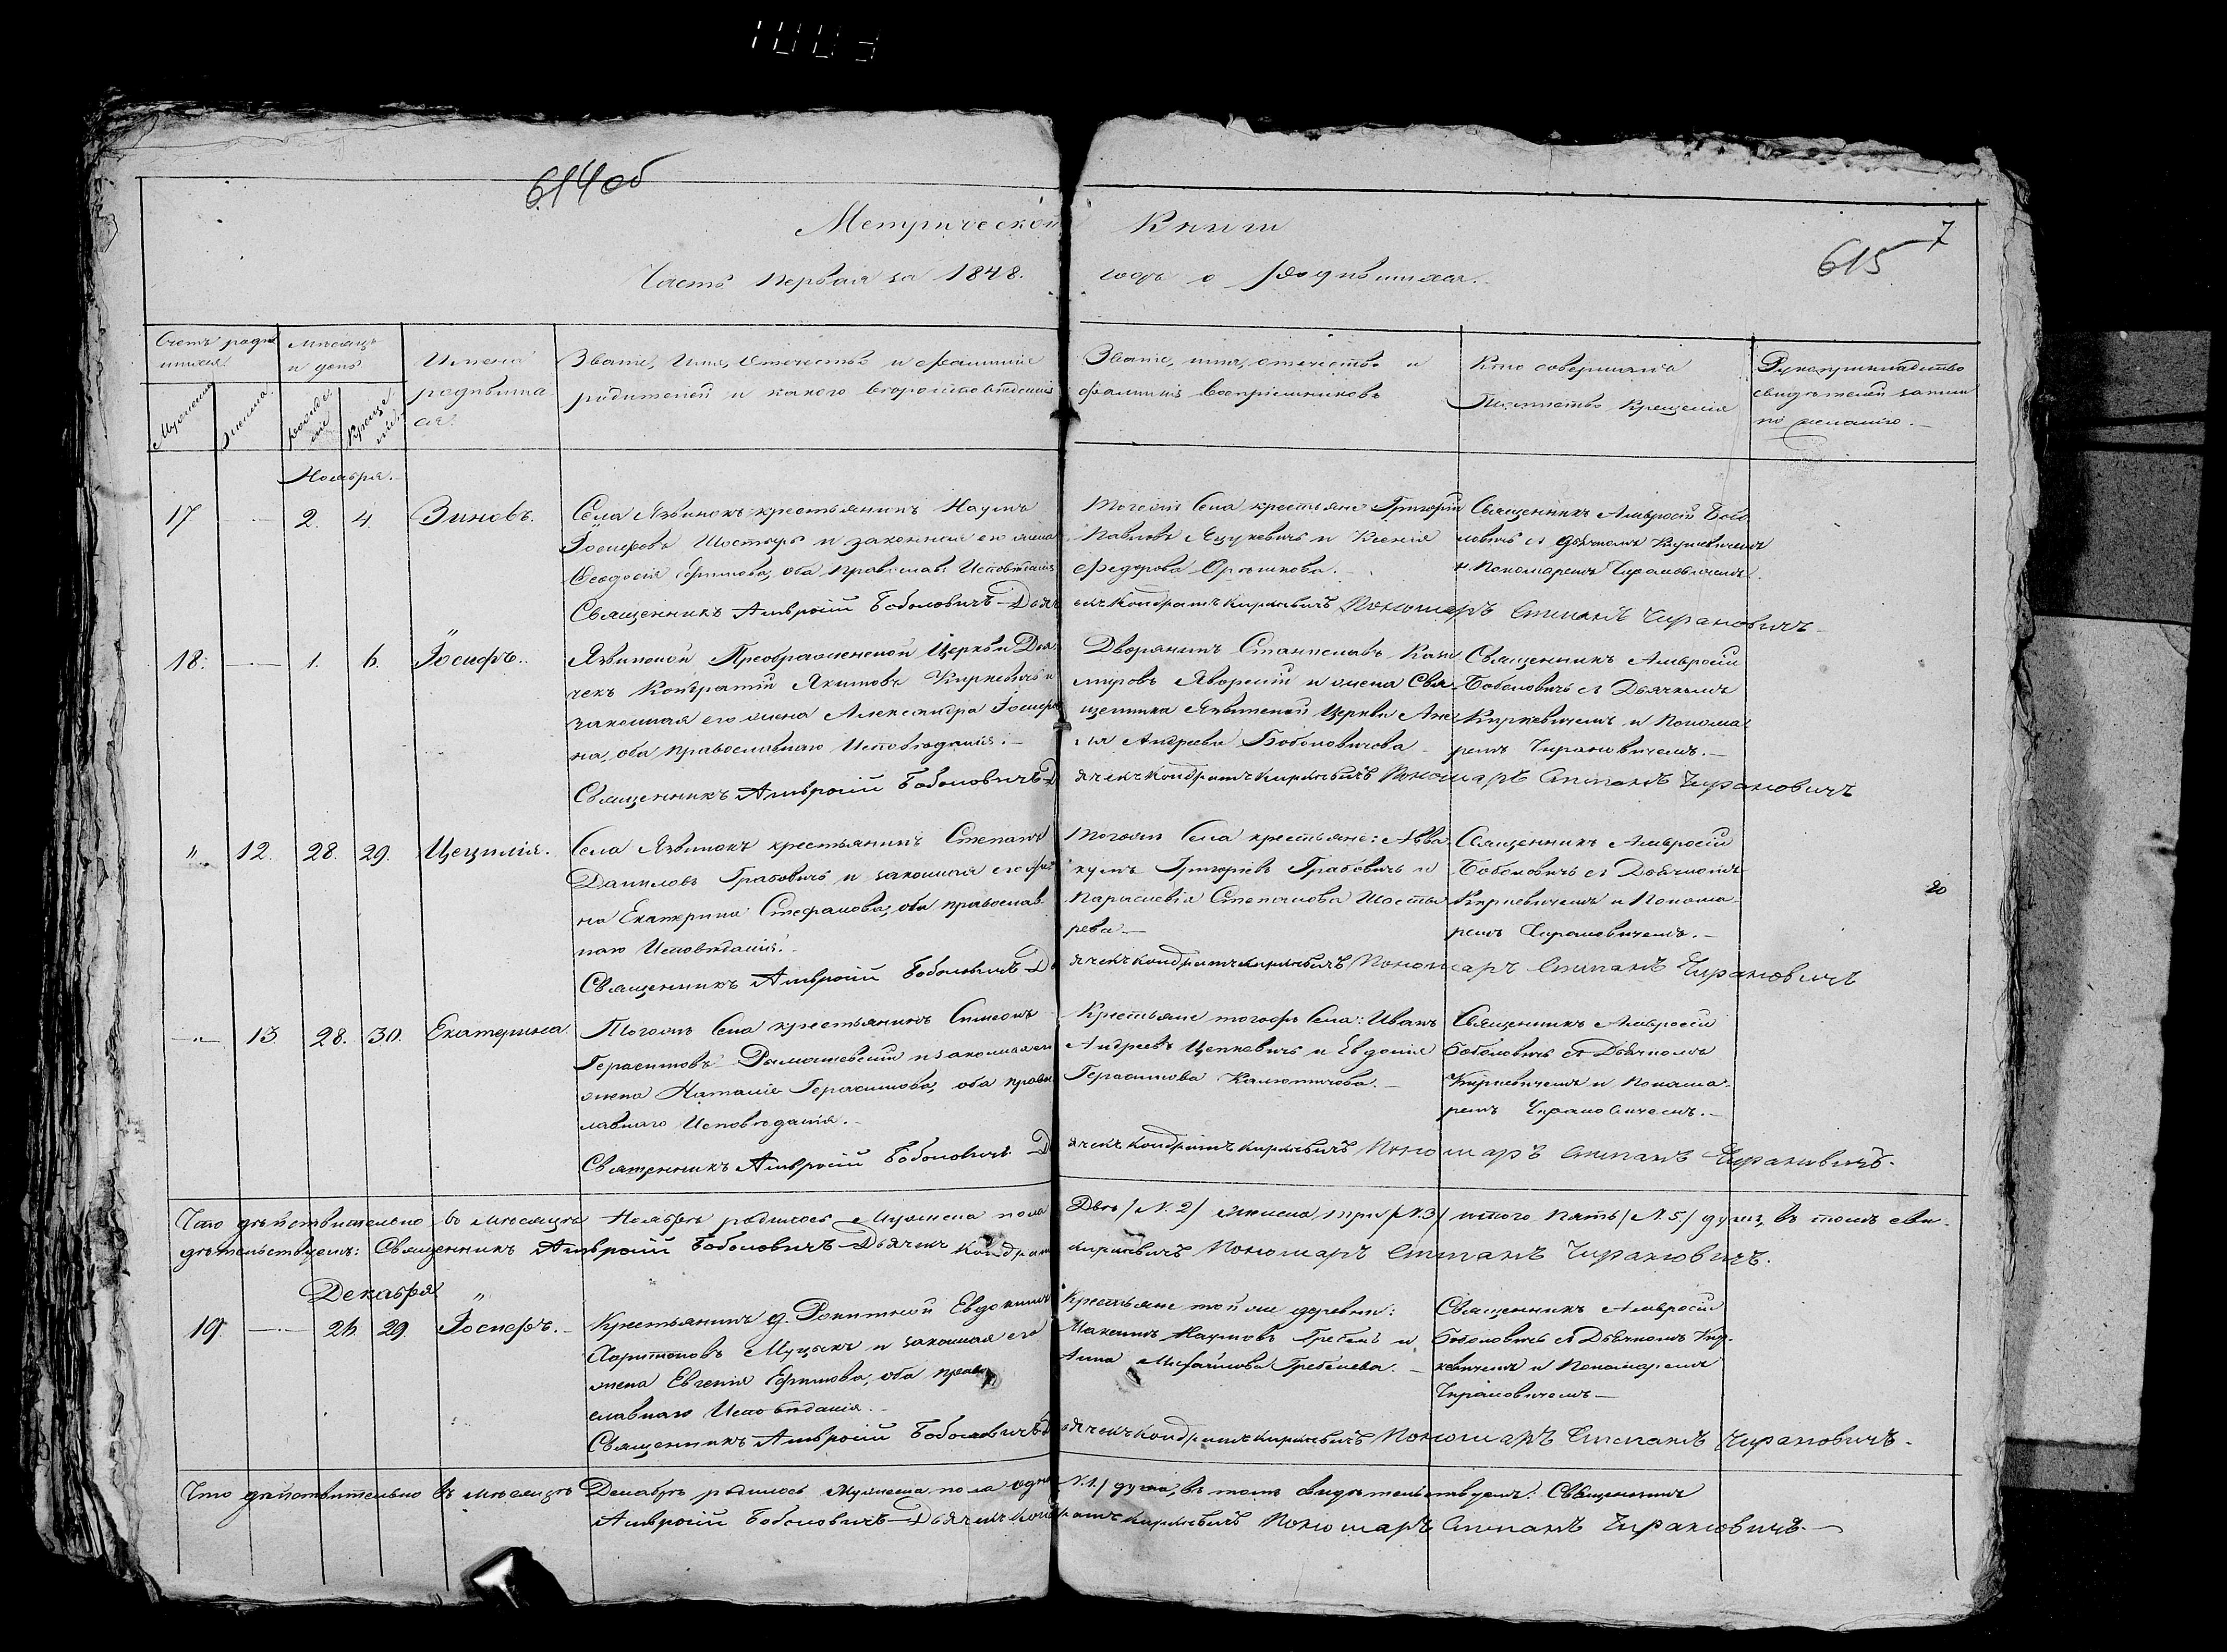 1003
614об
Метрической Книги
615 7
Часть первая за 1848. годъ о родившихся.
Счетъ родив
шихся.
Мужеска
Женска
Месяцъ
и день
рожде
нiе
креще
нiе
Имена
родивша
ся.
Званiе, Имя, Отечество и фамилiя
родителей и какого вероисповеданiя
Званiе, имя, отечество и
фамилiя воспрiемниковъ
Кто совершалъ
Таинство Крещенiя
Рукоприкладство
свидетелей записи
по желанiю.
Ноября.
17 2. 4. Зиновъ.
Села Язвинокъ крестьянинъ Наумъ
Iосифовъ Шостыръ и законная его жена
Феодосiя Ефимова, оба Православ: Исповеданiя
Тогожъ Села крестьяне Григорiй
Павловъ Яцукевичъ и Ксенiя
Федорова
Священникъ Амвросiй Бобо
ловичъ съ Дьячкомъ Киркевичемъ
и Пономаремъ Чирановичемъ.
Священникъ Амвросiй Боболовичъ Дьячекъ Кондратъ Киркевичъ Пономаръ Стипанъ Чирановичъ
18. 1. 6. Iосифъ.
Язвинской Преображенской Церкви Дья
чекъ Кондратiй Якимовъ Киркевичъ и
законная его жена Александра Iосифо
на, оба православнаго Исповеданiя.
Дворянинъ Станиславъ Кази
мировъ Яворскiй и жена Свя
щенника Язвинской Церкви
Андреева Боболовичова
Священникъ Амвросiй
Боболовичъ съ Дьячкомъ
Киркевичемъ и Понома
ремъ Чирановичемъ.
Священникъ Амвросiй Боболовичъ Дьячекъ Кондратъ Киркевичъ Пономаръ Стипанъ Чирановичъ
" 12. 28. 29. Цецилiя.
Села Язвинокъ крестьянинъ Степанъ
Даниловъ Грабовичъ и законная его же
на Екатерина Стефанова, оба православ
наго Исповеданiя.
Тогожъ Села крестьяне: Авва
кумъ Григорiевъ Грабовичъ и
Параскевiя Степанова Шосты
рева
Священникъ Амвросiй
Боболовичъ съ Дьячкомъ
Киркевичемъ и Понома
ремъ Чирановичемъ.
20
Священникъ Амвросiй Боболовичъ Дьячекъ Кондратъ Киркевичъ Пономаръ Стипанъ Чирановичъ
" 13. 28. 30. Екатерина
Тогожъ Села крестьянинъ Симеонъ
Герасимовъ Ромашевскiй и законная его
жена Наталiя Герасимова, оба правос
лавнаго Исповеданiя.
Крестьяне тогожъ Села: Иванъ
Андреевъ Цепкевичъ и Евдокiя
Герасимова
Священникъ Амвросiй
Боболовичъ съ Дьячкомъ
Киркевичемъ и Понома
ремъ Чирановичемъ.
Священникъ Амвросiй Боболовичъ Дьячекъ Кондратъ Киркевичъ Пономаръ Стипанъ Чирановичъ.
Что действительно въ месяце Ноябре родилось Мужеска пола Два /N. 2/ женска, три /N. 3/ итого Пять /N. 5/ душъ, въ томъ сви
детельствуемъ: Священникъ Амвросiй Боболовичъ Дьячекъ Кондратъ Киркевичъ Пономаръ Стипанъ Чирановичъ.
Декабря
19. 26. 29. Iосифъ.
Крестьянинъ д. Рокитной Евдокимъ
Харитоновъ Муцыкъ и законная его
жена Евгенiя Ефимова, оба право
славнаго Исповеданiя.
Крестьяне той же деревни:
Максимъ Наумовъ Гребень и
Анна Михайлова Гребенева.
Священникъ Амвросiй
Боболовичъ съ Дьячкомъ Кир
кевичемъ и Пономаремъ
Чирановичемъ
Священникъ Амвросiй Боболовичъ Дьячекъ Кондратъ Киркевичъ Пономаръ Стипанъ Чирановичъ.
Что действительно въ месяце Декабре родилось Мужеска пола одна /N. 1./ душа, въ томъ свидетельствуемъ: Священникъ
Амвросiй Боболовичъ Дьячекъ Кондратъ Киркевичъ Пономаръ Стипанъ Чирановичъ.